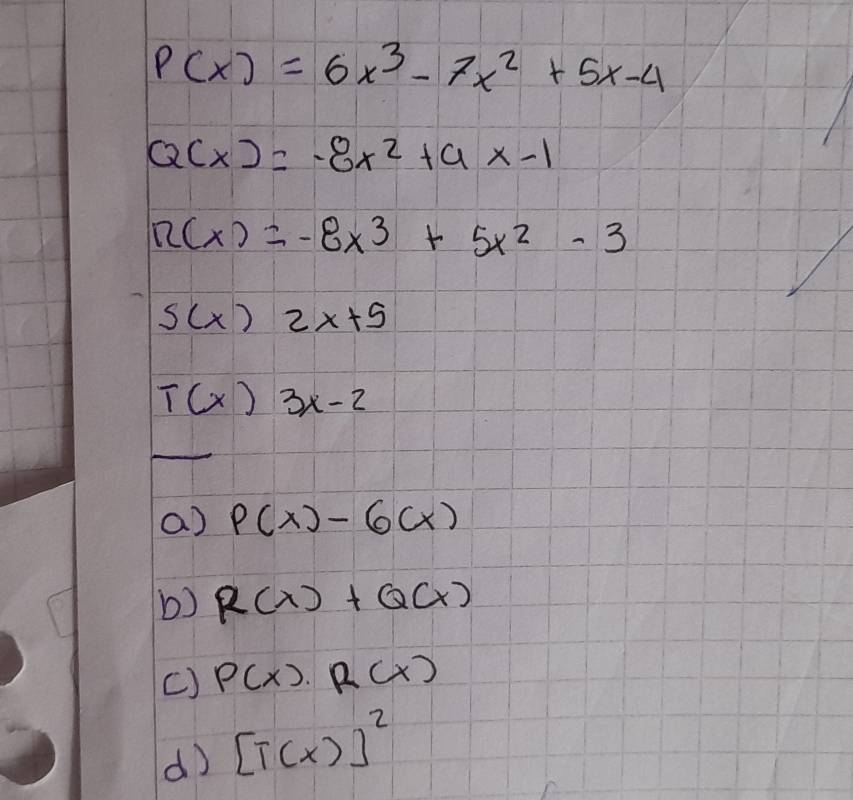 P(x) = 6x³ - 7x² + 5x-4
Q(x) = -8x² + 4x-1
R(x) = -8x³ + 5x² - 3
S(x) 2x+5
T(x) 3x-2
a) P(x) - G(x)
b) R(x) + Q(x)
c) P(x). R(x)
d) [T(x)]²